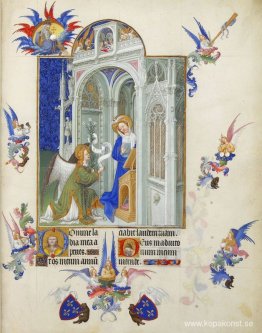 omine la
bia mea a
peries
os meum annū
ciabit laudem tuam.
eus in adiuto
rium meum
intende.
www.kopakonst.se